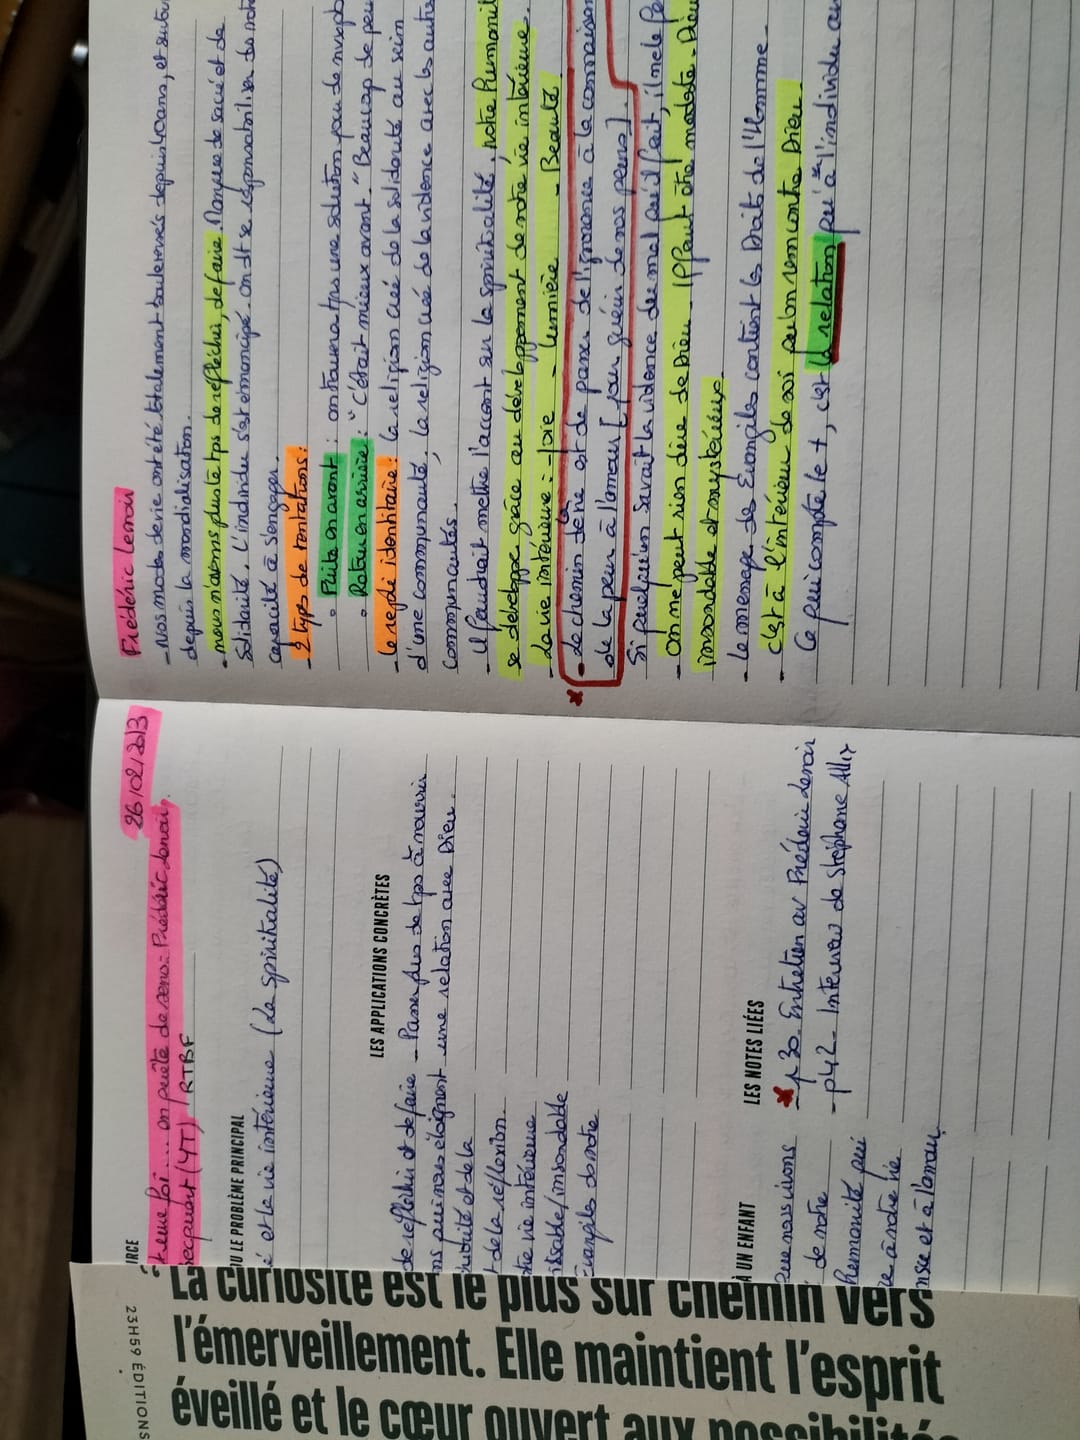 23H59 ÉDITIONS
La curiosité est le plus sûr chemin vers
l'émerveillement. Elle maintient l'esprit
éveillé et le cœur ouvert aux possibilités
RCE
26/02/2013
thème foi... en quête de sens: Frédéric Lenoir,
(YT) / RTBF
U LE PROBLÈME PRINCIPAL
é et la vie intérieure (la spiritualité)
LES APPLICATIONS CONCRÈTES
de réfléchir et de faire
ns qui nous éloignent
et de la
t de la réflexion.
tre vie intérieure
insondable
Évangiles de notre
- Passer plus de tps à nourrir
une relation avec Dieu.
À UN ENFANT
que nous vivons
de notre
Humanité qui
ce à notre vie
et à l'amour.
LES NOTES LIÉES
- p30 - Entretien av Frédéric Lenoir
- p42 - Interview de Stéphane Allix
Frédéric Lenoir
- Nos modes de vie ont été totalement bouleversés depuis 40 ans, et surtou
depuis la mondialisation.
- nous n'avons plus le tps de réfléchir, de faire. Manque de sacré et de
solidarité. L'individu s'est émancipé. On dt se responsabiliser de notr
capacité à s'engager.
- 2 types de tentations:
° Fuite en avant: on trouvera tjrs une solution
° Retour en arrière: "C'était mieux avant." Beaucoup de peu
- le repli identitaire: la religion crée de la solidarité au sein
d'une communauté, la religion crée de la violence avec les autre
communautés.
- Il faudrait mettre l'accent sur la spiritualité, notre Humanit
se développe grâce au développement de notre vie intérieure.
- La vie intérieure: - Joie - Lumière - Beauté.
- Le chemin de vie est de passer de l'ignorance à la connaissan
de la peur à l'amour [pour guérir de nos peurs].
Si quelqu'un savait la violence du mal qu'il fait, il ne le fe
- On ne peut rien dire de Dieu. Il faut être modeste. Dieu
insondable et mystérieux.
- Le message des Évangiles contient les Droits de l'Homme.
- c'est à l'intérieur de soi qu'on rencontre Dieu.
Ce qui compte le +, c'est la relation qu'a l'individu av